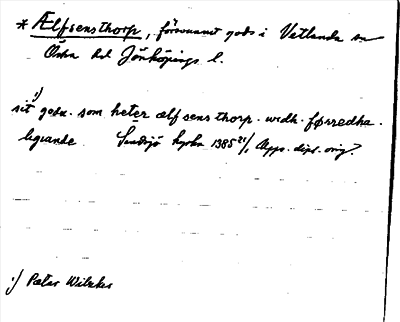 * Ælfsensthorp, försvunnet gods i Vetlanda sn
Östra hd Jönköpings l.
sit¹) godz. som heter ælfsens thorp. widh. førredha.
legiande. Sundsjö kyrka 1385 21/1 Upps. dipl. orig.
¹) Pæter